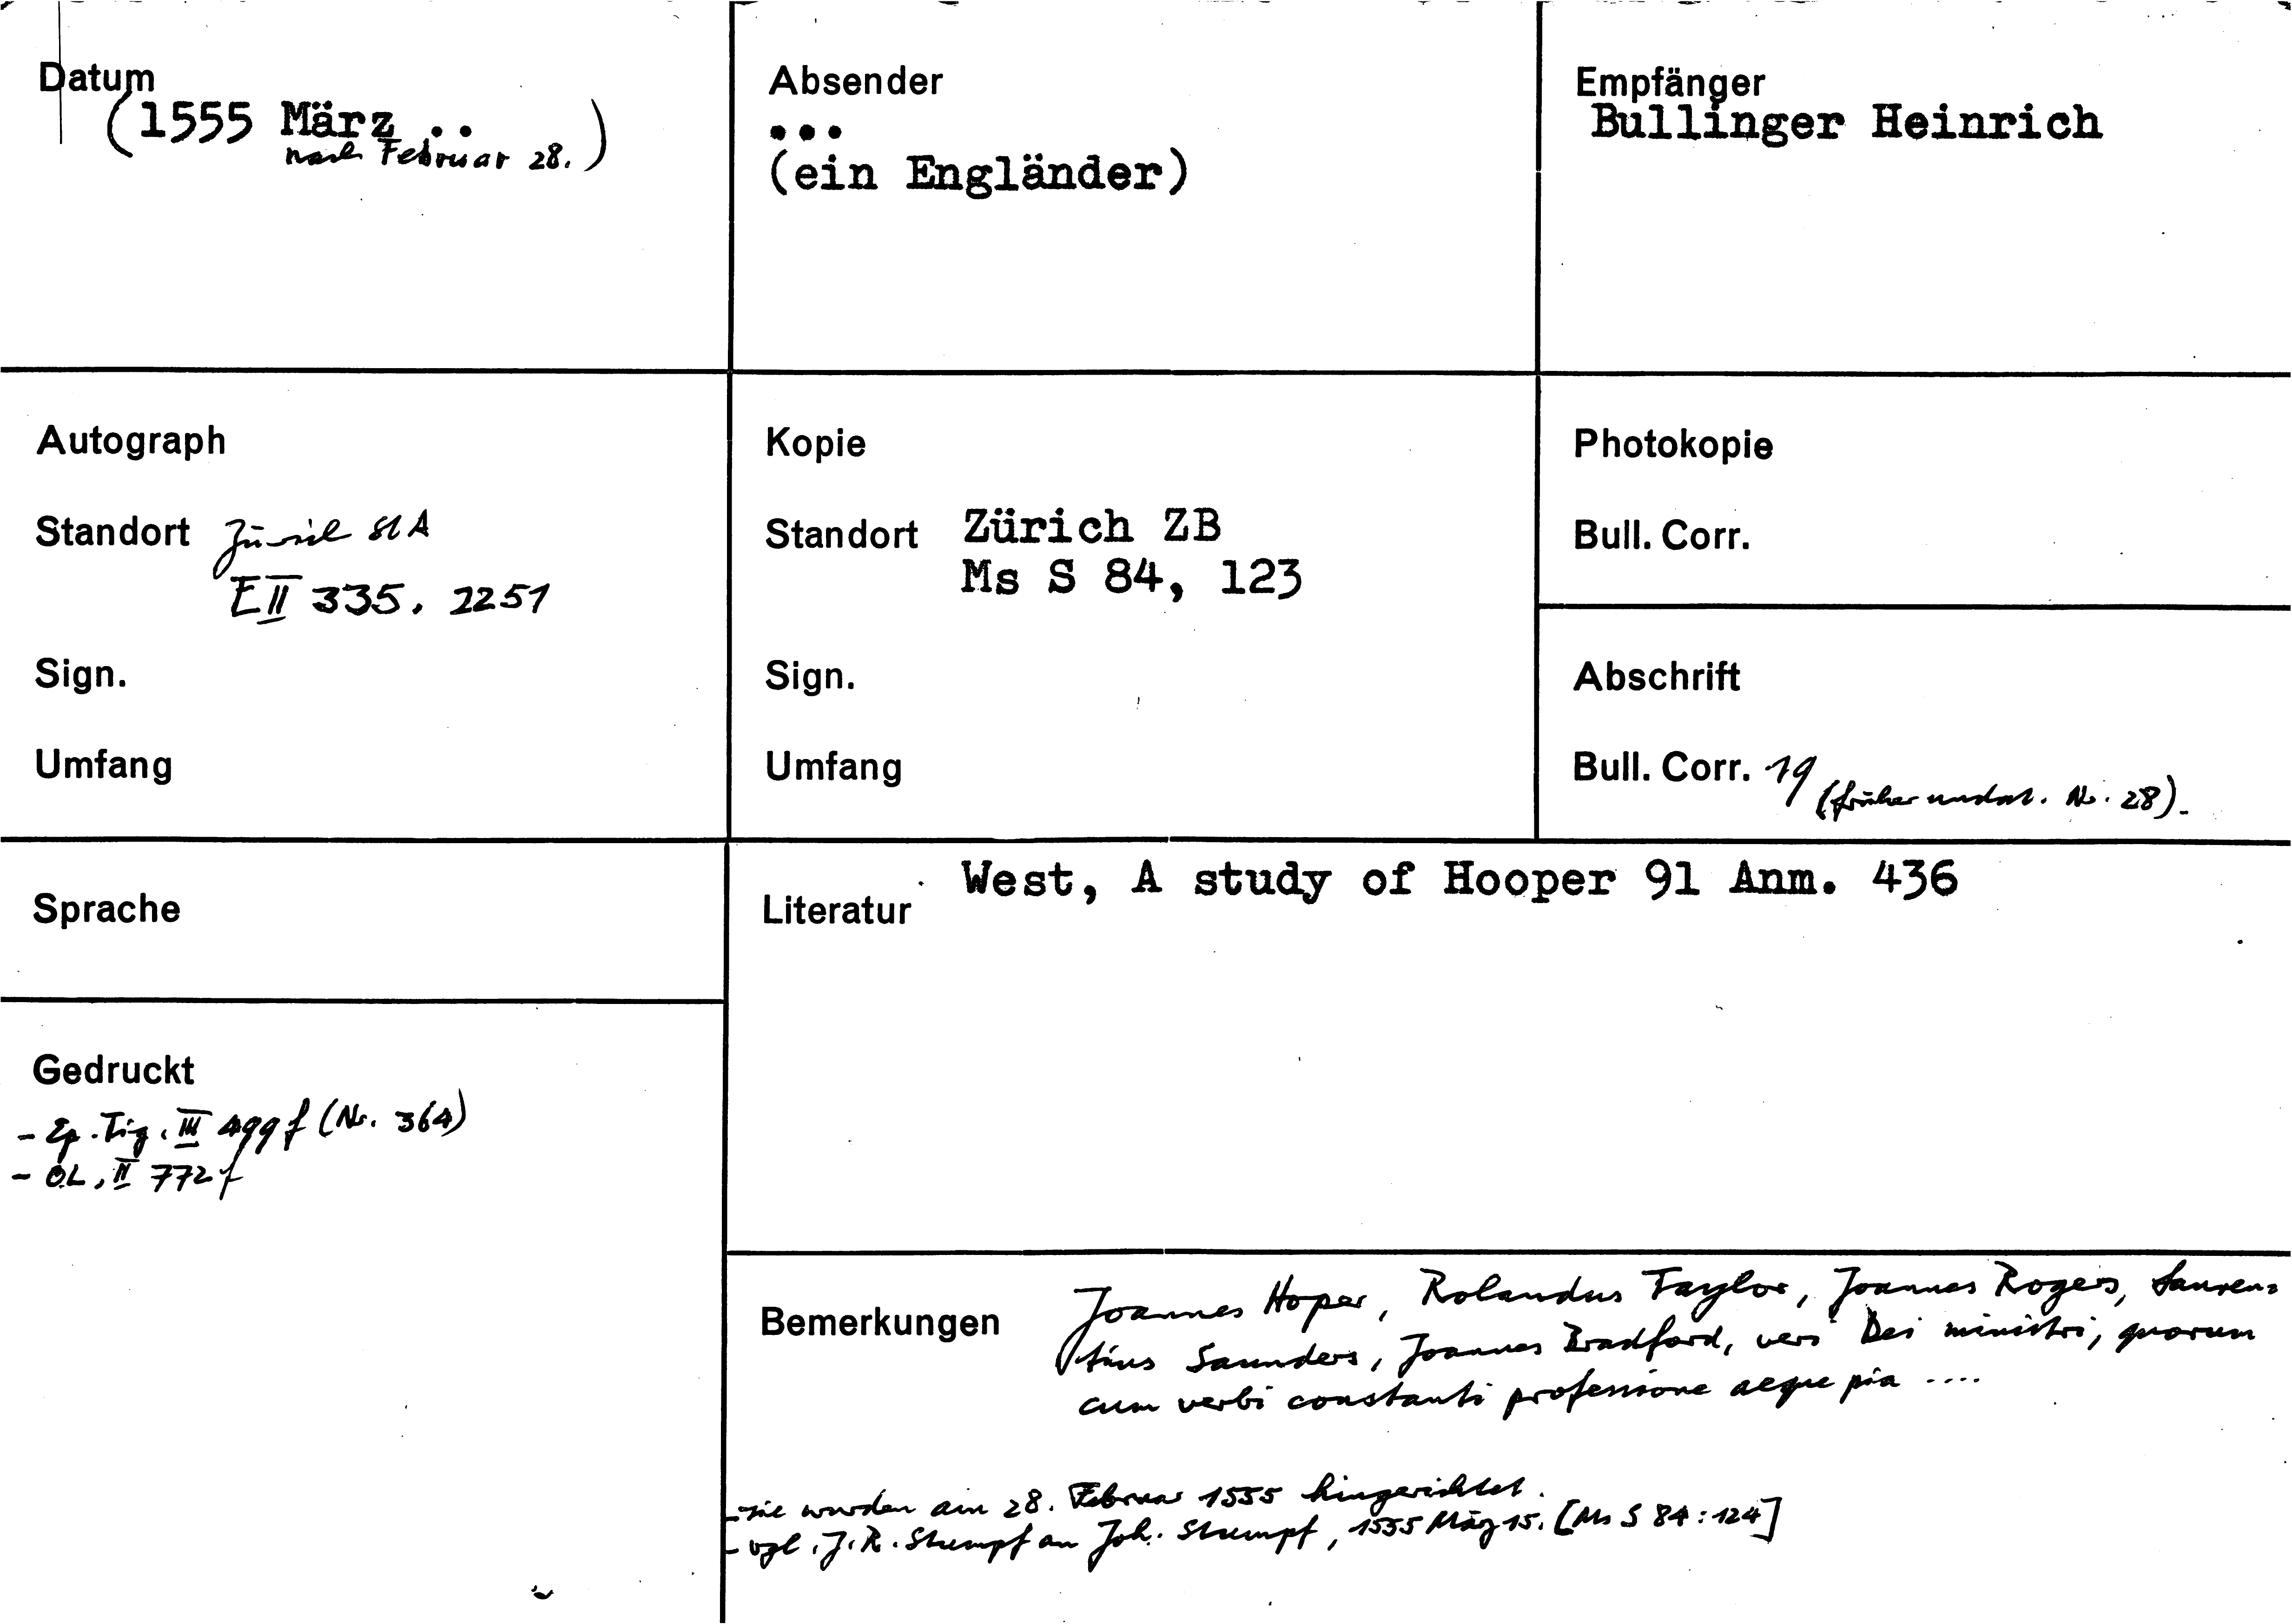 Datum
(1555 März ..
nach Februar 28.)
Absender
...
(ein Engländer)
Empfänger
Bullinger Heinrich
Autograph
Standort Zürich StA
E II 335, 2251
Sign.
Umfang
Kopie
Standort Zürich ZB
Ms S 84, 123
Sign.
Umfang
Photokopie
Bull. Corr.
Abschrift
Bull. Corr. 19 (früher undat. Nr. 28).
Sprache
Literatur West, A study of Hooper 91 Anm. 436
Gedruckt
- Ep. Tig. III 499 f (Nr. 364)
- OL, II 772 f
Bemerkungen Joannes Hoper, Rolandus Taylor, Joannes Rogers, Lauren=
tius Saunders, Joannes Bradford, veri Dei ministri, quorum
cum verbi constanti professione aeque pia ....
- sie wurden am 28. Februar 1555 hingerichtet.
- vgl. J. R. Stumpf an Joh. Stumpf, 1555 März 15. [Ms S 84: 124]